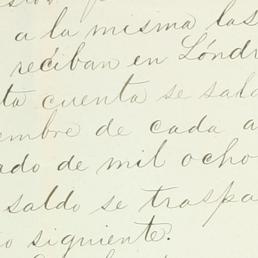 a la misma las
reciban en Lóndr
ta cuenta se sald
embre de cada a
ado de mil ocho
saldo se traspa
o siguiente.